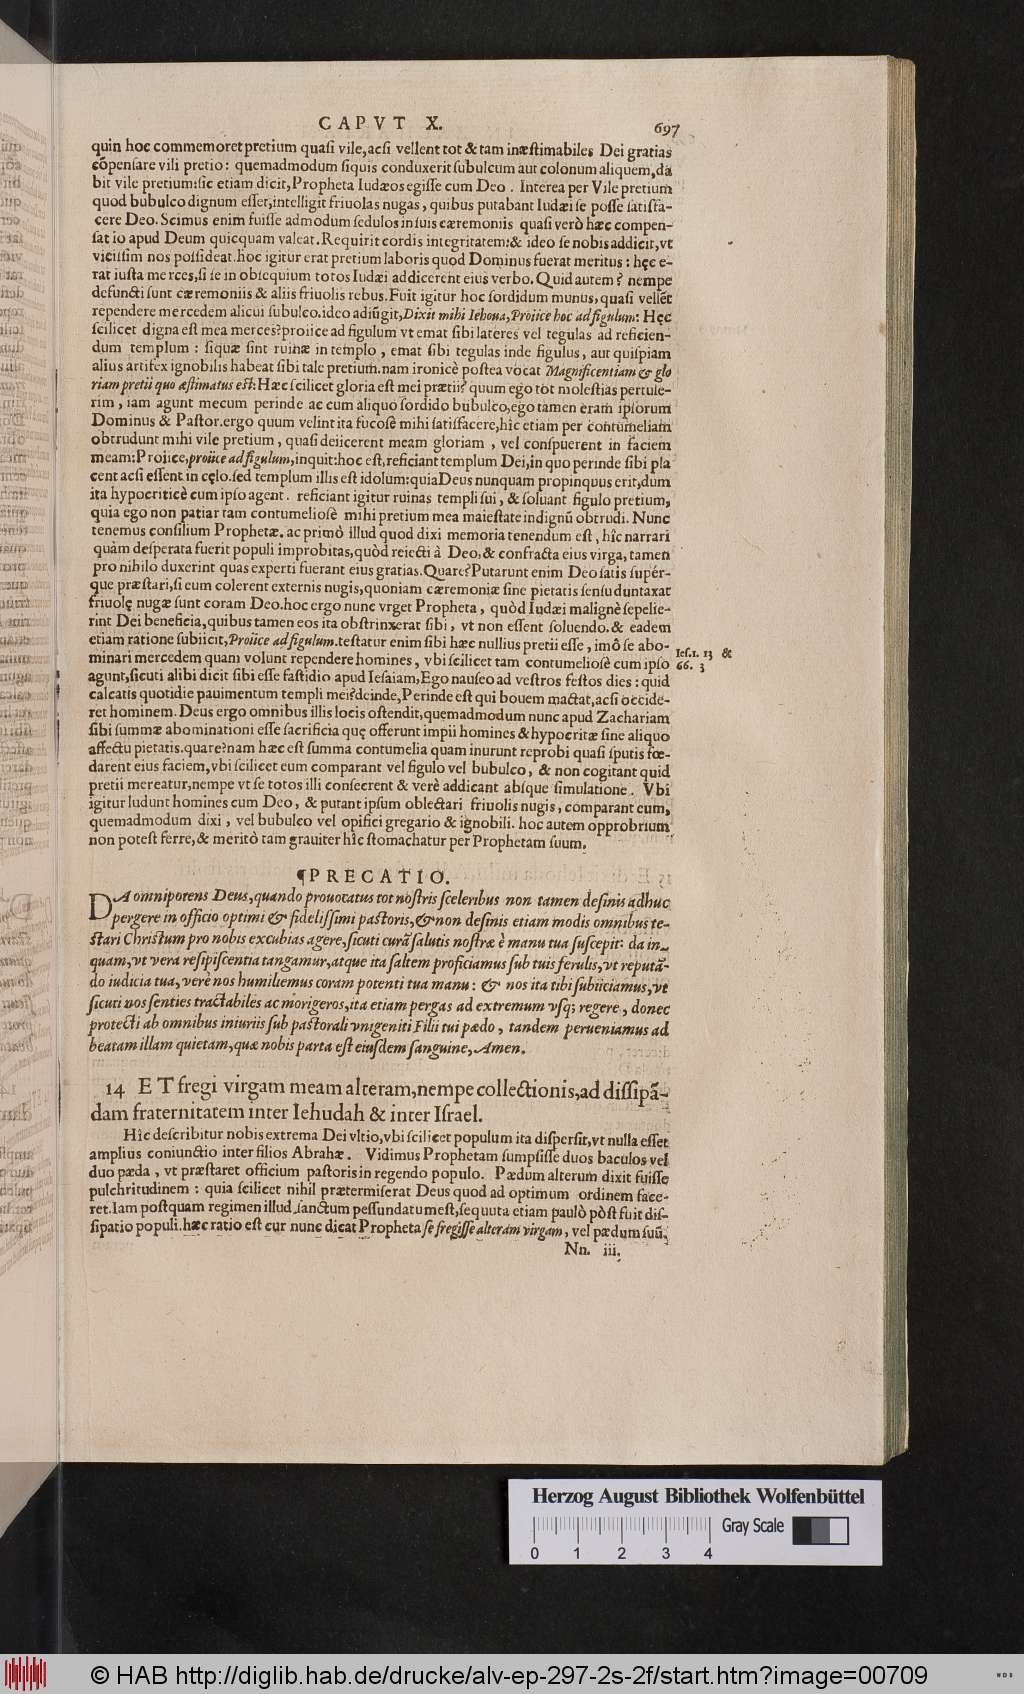 CAPVT X. 697
quin hoc commemoret pretium quasi vile, acsi vellent tot & tam inæstimabiles Dei gratias
cõpensare vili pretio: quemadmodum siquis conduxerit subulcum aut colonum aliquem, da
bit vile pretium: sic etiam dicit, Propheta Iudæos egisse cum Deo. Interea per Vile pretium
quod bubulco dignum esset, intelligit friuolas nugas, quibus putabant Iudæi se posse satisfa-
cere Deo. Scimus enim fuisse admodum sedulos in suis cæremoniis quasi verò hæc compen-
satio apud Deum quicquam valeat. Requirit cordis integritatem: & ideo se nobis addicit, vt
vicissim nos possideat. hoc igitur erat pretium laboris quod Dominus fuerat meritus: hęc e-
rat iusta merces, si se in obsequium totos Iudæi addicerent eius verbo. Quid autem? nempe
defuncti sunt cæremoniis & aliis friuolis rebus. Fuit igitur hoc sordidum munus, quasi vellet
rependere mercedem alicui subulco. ideo adiũgit, Dixit mihi Iehoua, Proiice hoc ad figulum: Hęc
scilicet digna est mea merces? proiice ad figulum vt emat sibi lateres vel tegulas ad reficien-
dum templum: siquæ sint ruinæ in templo, emat sibi tegulas inde figulus, aut quispiam
alius artifex ignobilis habeat sibi tale pretium. nam ironicè postea vocat Magnificentiam & glo
riam pretii quo æstimatus est: Hæc scilicet gloria est mei prætii? quum ego tot molestias pertule-
rim, iam agunt mecum perinde ac cum aliquo sordido bubulco, ego tamen eram ipsorum
Dominus & Pastor. ergo quum velint ita fucosè mihi satisfacere, hîc etiam per contumeliam
obtrudunt mihi vile pretium, quasi deiicerent meam gloriam, vel conspuerent in faciem
meam: Proiice, proiice ad figulum, inquit: hoc est, reficiant templum Dei, in quo perinde sibi pla
cent acsi essent in cęlo. sed templum illis est idolum: quia Deus nunquam propinquus erit, dum
ita hypocriticè cum ipso agent. reficiant igitur ruinas templi sui, & soluant figulo pretium,
quia ego non patiar tam contumeliosè mihi pretium mea maiestate indignũ obtrudi. Nunc
tenemus consilium Prophetæ. ac primò illud quod dixi memoria tenendum est, hîc narrari
quàm desperata fuerit populi improbitas, quòd reiecti à Deo, & confracta eius virga, tamen
pro nihilo duxerint quas experti fuerant eius gratias. Quare? Putarunt enim Deo satis supér-
que præstari, si eum colerent externis nugis, quoniam cæremoniæ sine pietatis sensu duntaxat
friuolę nugæ sunt coram Deo. hoc ergo nunc vrget Propheta, quòd Iudæi malignè sepelie-
rint Dei beneficia, quibus tamen eos ita obstrinxerat sibi, vt non essent soluendo. & eadem
etiam ratione subiicit, Proiice ad figulum. testatur enim sibi hæc nullius pretii esse, imò se abo-
minari mercedem quam volunt rependere homines, vbi scilicet tam contumeliosè cum ipso
Ies. 1. 13 &
66. 3
agunt, sicuti alibi dicit sibi esse fastidio apud Iesaiam, Ego nauseo ad vestros festos dies: quid
calcatis quotidie pauimentum templi mei? deinde, Perinde est qui bouem mactat, acsi occide-
ret hominem. Deus ergo omnibus illis locis ostendit, quemadmodum nunc apud Zachariam
sibi summæ abominationi esse sacrificia quę offerunt impii homines & hypocritæ sine aliquo
affectu pietatis. quare? nam hæc est summa contumelia quam inurunt reprobi quasi sputis fœ-
darent eius faciem, vbi scilicet eum comparant vel figulo vel bubulco, & non cogitant quid
pretii mereatur, nempe vt se totos illi consecrent & verè addicant absque simulatione. Vbi
igitur ludunt homines cum Deo, & putant ipsum oblectari friuolis nugis, comparant eum,
quemadmodum dixi, vel bubulco vel opifici gregario & ignobili. hoc autem opprobrium
non potest ferre, & meritò tam grauiter hîc stomachatur per Prophetam suum.
¶PRECATIO.
DA omnipotens Deus, quando prouocatus tot nostris sceleribus non tamen desinis adhuc
pergere in officio optimi & fidelissimi pastoris, & non desinis etiam modis omnibus te-
stari Christum pro nobis excubias agere, sicuti curã salutis nostræ è manu tua suscepit: da in-
quam, vt vera resipiscentia tangamur, atque ita saltem proficiamus sub tuis ferulis, vt reputã-
do iudicia tua, verè nos humiliemus coram potenti tua manu: & nos ita tibi subiiciamus, vt
sicuti nos senties tractabiles ac morigeros, ita etiam pergas ad extremum vsq; regere, donec
protecti ab omnibus iniuriis sub pastorali vnigeniti Filii tui pædo, tandem perueniamus ad
beatam illam quietam, quæ nobis parta est eiusdem sanguine, Amen.
14 ET fregi virgam meam alteram, nempe collectionis, ad dissipã-
dam fraternitatem inter Iehudah & inter Israel.
Hîc describitur nobis extrema Dei vltio, vbi scilicet populum ita dispersit, vt nulla esset
amplius coniunctio inter filios Abrahæ. Vidimus Prophetam sumpsisse duos baculos vel
duo pæda, vt præstaret officium pastoris in regendo populo. Pædum alterum dixit fuisse
pulchritudinem: quia scilicet nihil prætermiserat Deus quod ad optimum ordinem face-
ret. Iam postquam regimen illud sanctum pessundatum est, sequuta etiam paulò pòst fuit dis-
sipatio populi. hæc ratio est cur nunc dicat Propheta se fregisse alteram virgam, vel pædum suũ,
Nn. iii.
Herzog August Bibliothek Wolfenbüttel
Gray Scale
0 1 2 3 4
© HAB http://diglib.hab.de/drucke/alv-ep-297-2s-2f/start.htm?image=00709